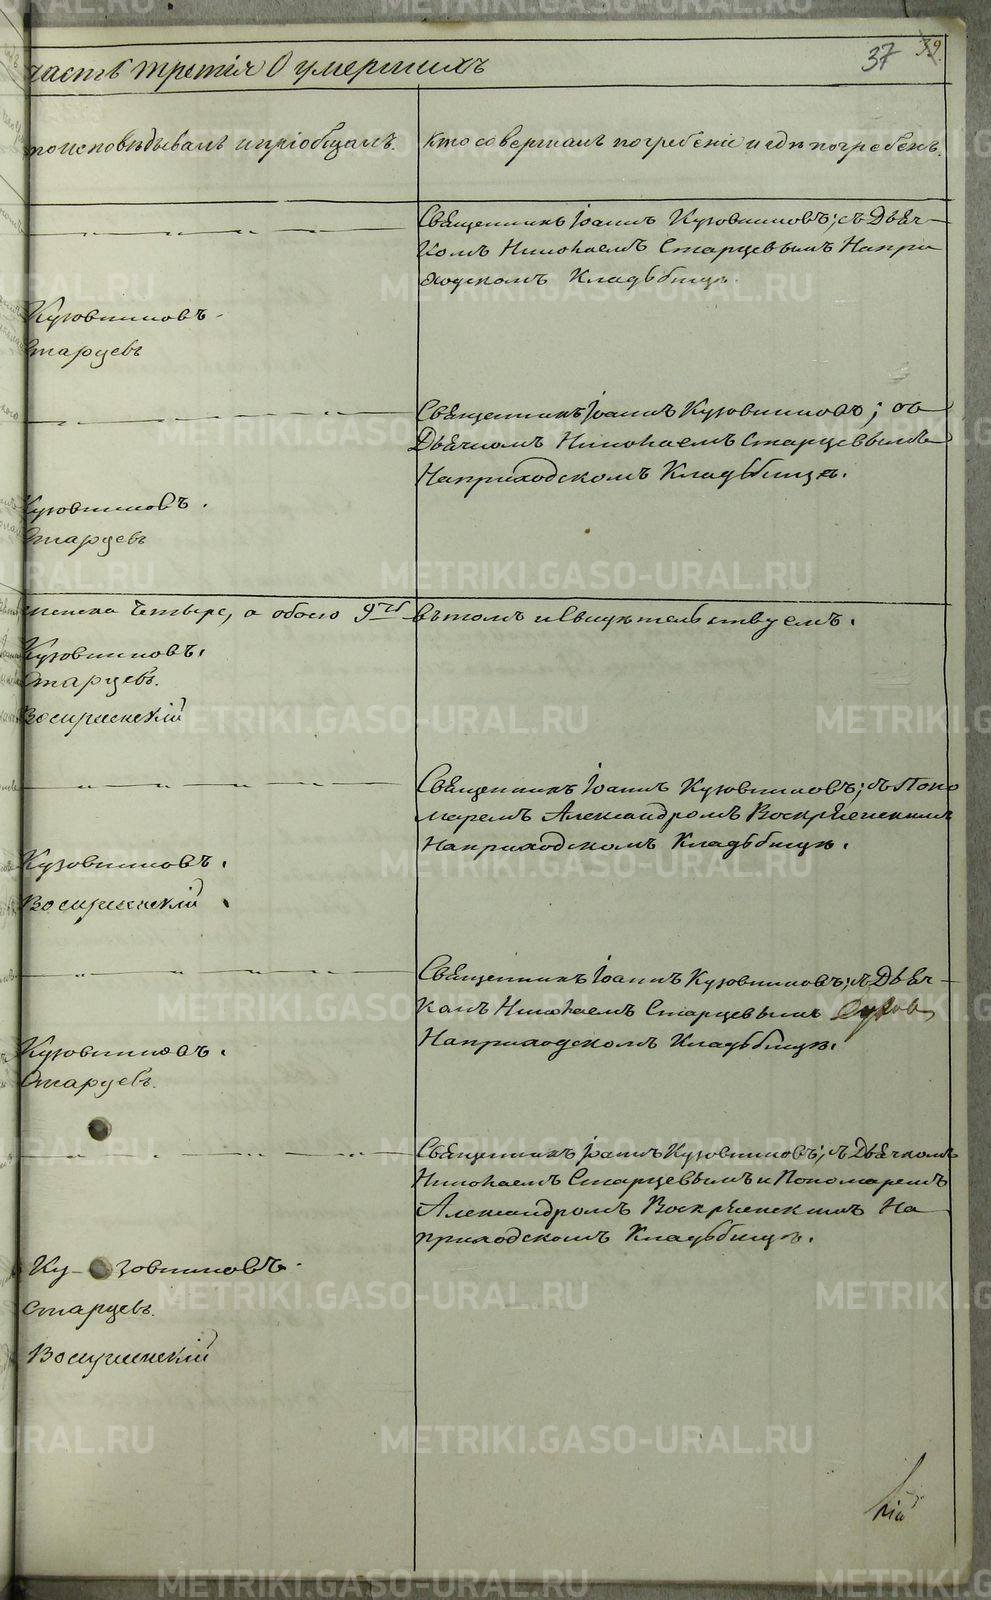 часть третія О умершихъ
37 39
то исповѣдывалъ и пріобщалъ.
Кто совершалъ погребеніе и гдѣ погребенъ.
Священникъ Іоаннъ Кузовниковъ; съ Дьяч-
комъ Николаемъ Старцевымъ На при
ходскомъ Кладьбищѣ.
Кузовниковъ.
Старцевъ
Священникъ Іоаннъ Кузовниковъ; съ
Дьячкомъ Николаемъ Старцевымъ
На приходскомъ Кладьбищѣ.
Кузовниковъ.
Старцевъ
женска четыре, а обоего 9ть въ томъ и Свидѣтельствуемъ.
Кузовниковъ.
Старцевъ.
Воскресенскій
Священникъ Іоаннъ Кузовниковъ; съ Поно
маремъ Александромъ Воскресенскимъ
На приходскомъ Кладьбищѣ.
Кузовниковъ.
Воскресенскій
Священникъ Іоаннъ Кузовниковъ; съ Дьяч-
комъ Николаемъ Старцевымъ
На приходскомъ Кладьбищѣ.
Кузовниковъ.
Старцевъ.
Священникъ Іоаннъ Кузовниковъ; съ Дьячкомъ
Николаемъ Старцевымъ и Пономаремъ
Александромъ Воскресенскимъ На
приходскомъ Кладьбищѣ.
Ку-зовниковъ.
Старцевъ.
Воскресенскій
METRIKI.GASO-URAL.RU